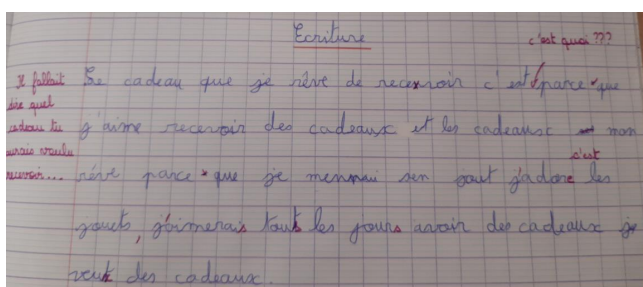 Ecriture
c'est quoi ???
Il fallait
dire quel
cadeau tu
aurais voulu
recevoir...
Le cadeau que je rêve de recevoir c'est parce que
j'aime recevoir des cadeaux et les cadeaux mon
c'est
rêve parce que je sen tout j'adore les
jouets, j'aimerais touts les jours avoir des cadeaux je
veux des cadeaux.